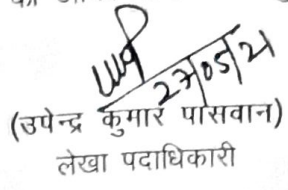 27/05/21
(उपेन्द्र कुमार पासवान)
लेखा पदाधिकारी